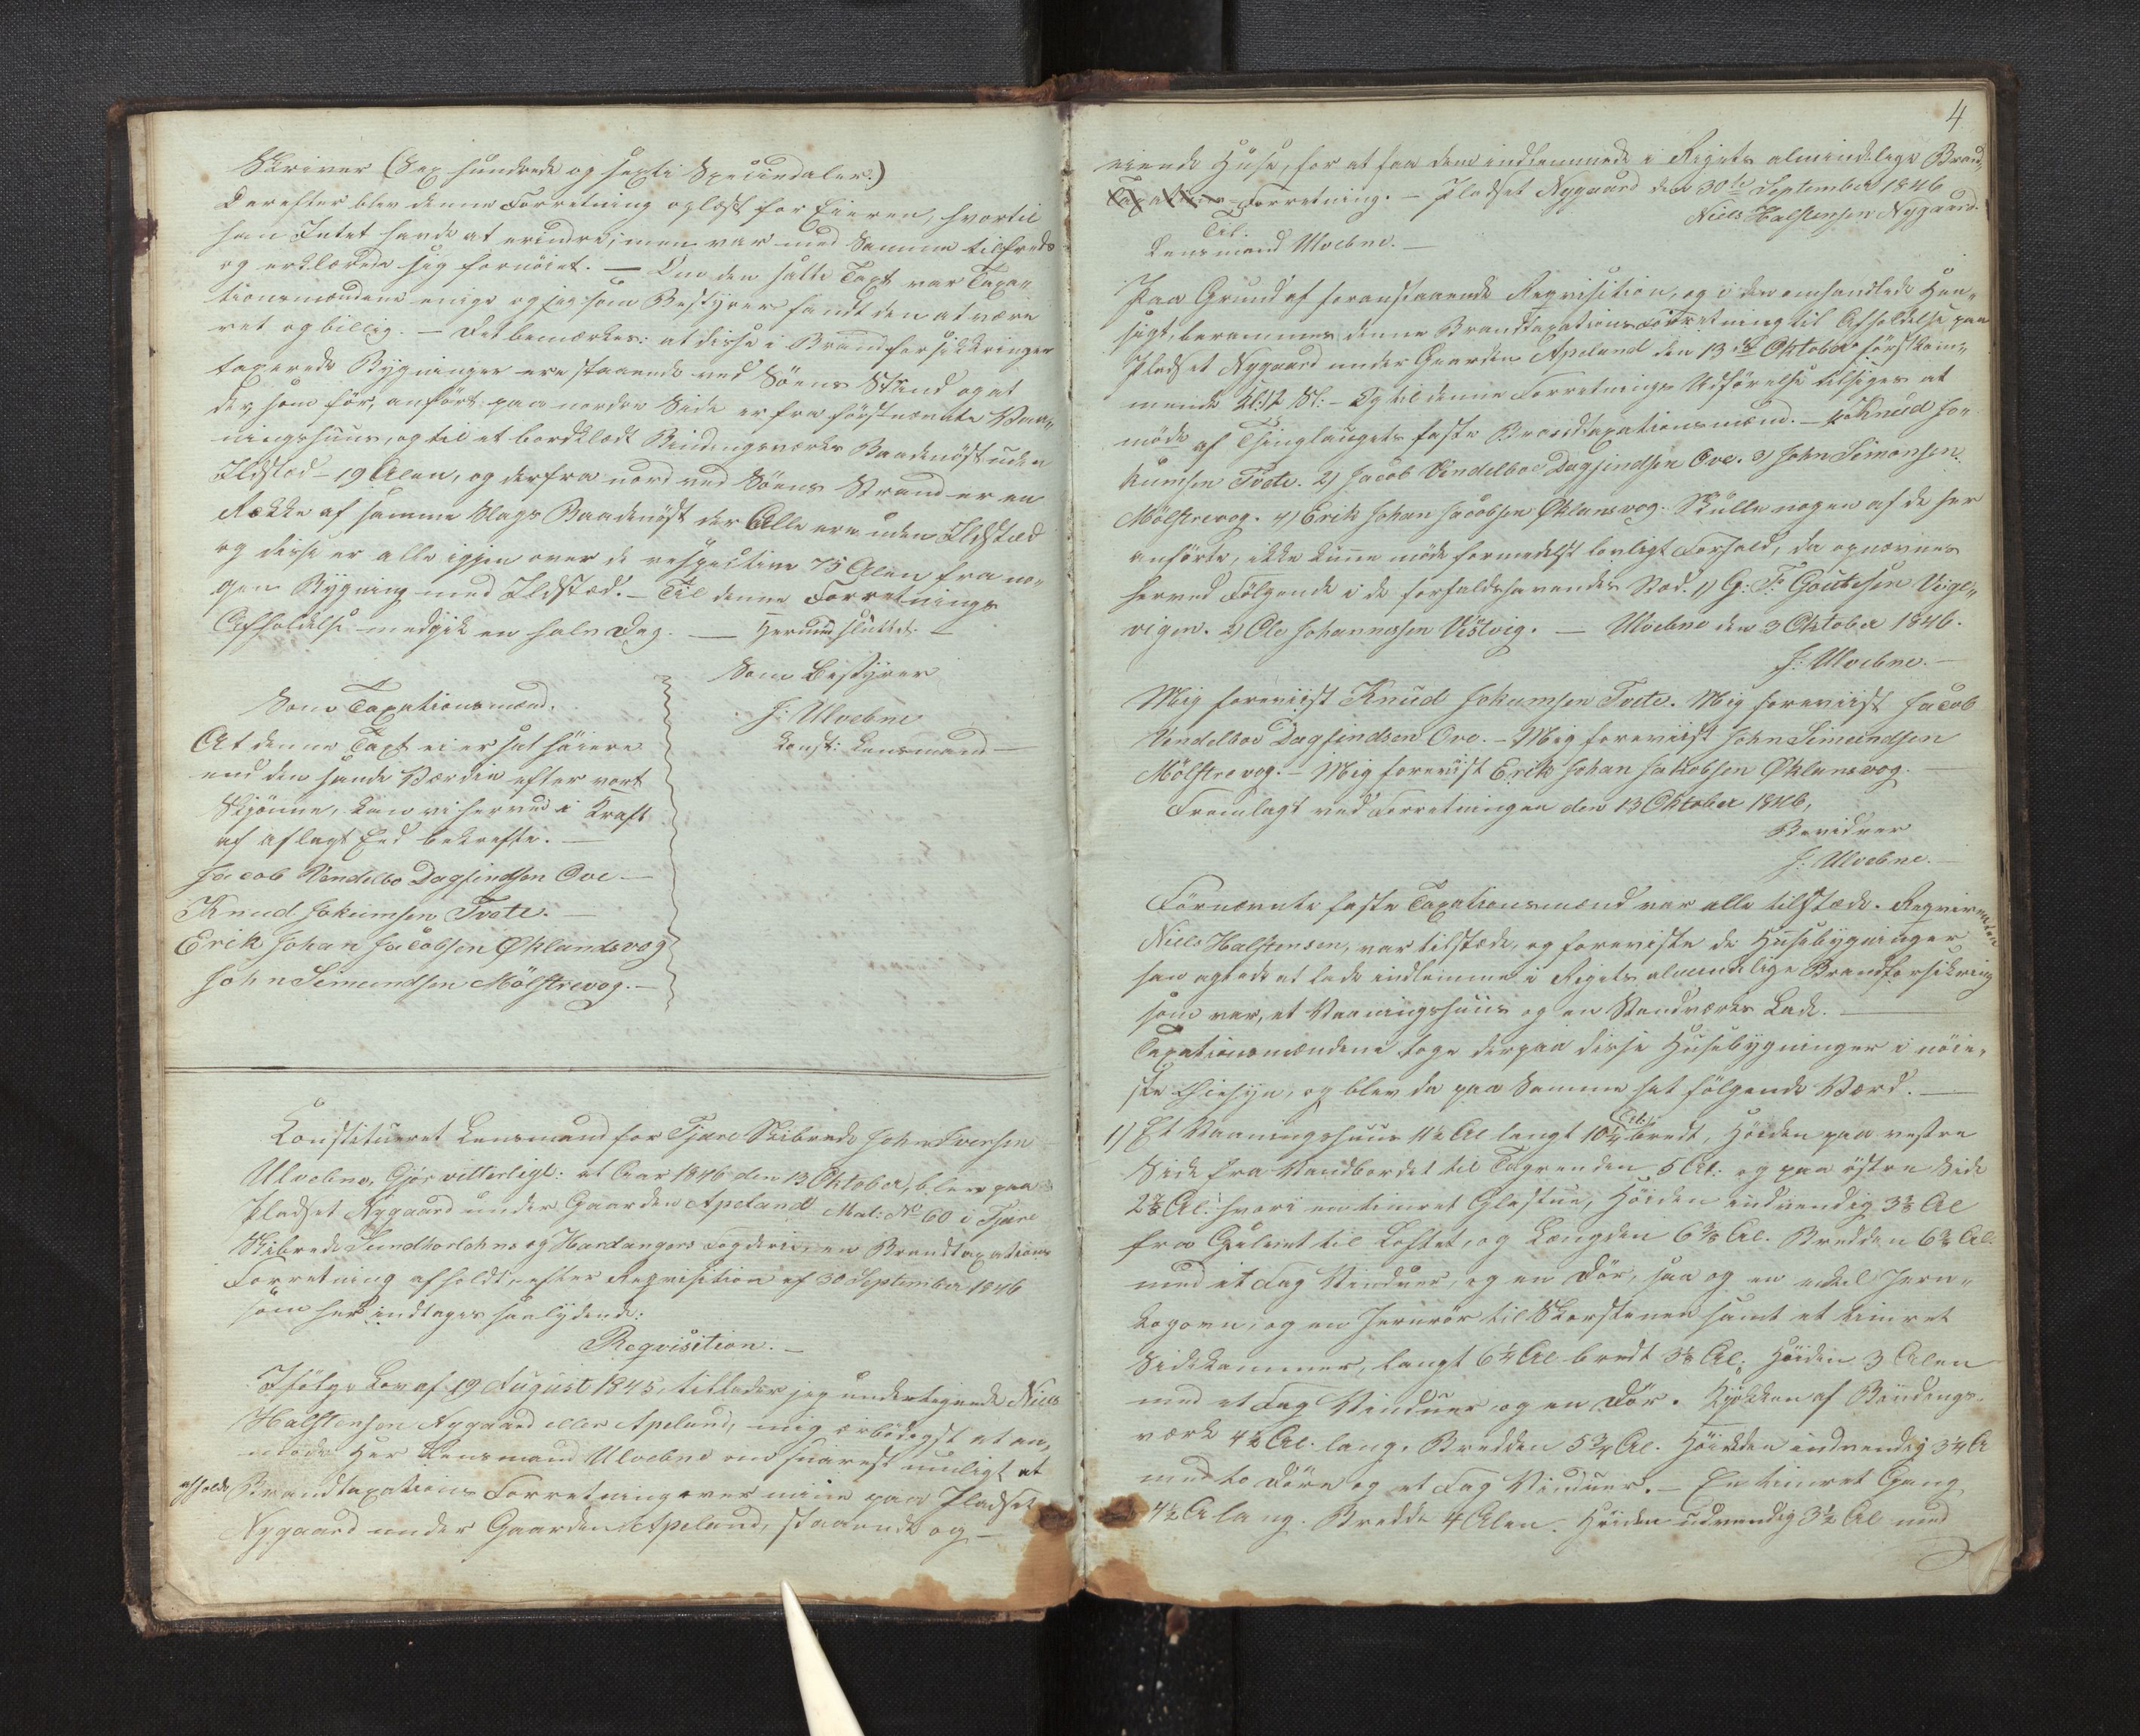 Skriver (Sex hundrede og sexti Speciedaler.)
Derefter blev denne Forretning oplæst for Eieren, hvortil
han Intet havde at erindre; men var med Samme tilfreds
og erklærede sig fornöiet. — Om den satte Taxt var Taxa-
tionsmændene enige og jeg som Bestyrer fandt den at være
ret og billig. — Det bemærkes: at disse i Brandforsikkringen
taxerede Bygninger ere staaende ved Söens Strand og at
der, som för, anfört paa nordre Side er fra förstnævnte Vaa-
ningshuus, og til et bordklædt Bindingsværks Baadenöst uden
Ildsted - 19 Alen, og derfra nord ved Söens Strand er en
Række af samme Slags Baadenöst der Alle ere uden Ildsted
og disse er alle igjen over de respective 75 Alen fra no-
gen Bygning med Ildsted. — Til denne Forretnings
Afholdelse medgik en halv Dag. — Hermed sluttet. —
Som Bestyrer
J: Ulvebne
Const: Lensmand —
Som Taxationsmænd.
At denne Taxt ei er sat höiere
end den sande Værdie efter vort
Skjönne, kan vi herved i Kraft
af aflagt Eed bekræfte. —
Jacob Vendelbo Dagfindsen Ove —
Knud Jokumsen Tvete. —
Erik Johan Jacobsen Øklandsvog
John Simundsen Mölstrevog. —
Constitueret Lensmand for Fjære Skibrede John Iversen
Ulvebne, Gjör vitterligt: at Aar 1846 den 13 Oktober, blev paa
Pladset Nygaard under Gaarden Apeland Mat: No 60 i Fjære
Skibrede Sundhorlehns og Hardangers Fogderie, en Brandtaxations
Forretning afholdt, efter Reqvisition af 30 September 1846
som her indtages saalydende:
Reqvisition. —
Ifölge Lov af 19 August 1845, tillader jeg undertegnede Niels
Halstensen Nygaard eller Apeland, mig ærbödigst at an-
mode Her Lensmand Ulvebne om snarest muligt at
afholde Brandtaxations Forretning over mine paa Pladset
Nygaard under Gaarden Apeland, staaende og —
4
eiende Huse, for at faa dem indlemmede i Rigets almindelige Brand-
Taxations-Forretning. — Pladset Nygaard den 30te September 1846
Niels Halstensen Nygaard.
Til
Lensmand Ulvebne. —
Paa Grund af foranstaaende Reqvisition, og i den omhandlede Hen-
sigt, berammes denne Brandtaxationsforretning til Afholdelse paa
Pladset Nygaard under Gaarden Apeland den 13de Oktober förstkom-
mende Kl: 12 Sl: — Og til denne Forretnings Udförelse tilsiges at
möde af Thinglaugets faste Brandtaxationsmænd. — 1) Knud Jo-
kumsen Tvete. 2) Jacob Vendelboe Dagfindsen Ove. 3) John Simonsen
Mölstrevog. 4) Erik Johan Jacobsen Øklansvog. Skulle nogen af de her
anförte, ikke kunne möde formedelst lovligt Forfald, da opnævnes
herved Fölgende i de forfaldshavendes Sted. 1) G: F: Goutesen Vigel-
vigen. 2) Ole Johannessen Vestvig. — Ulvebne den 3 Oktober 1846.
J: Ulvebne. —
Mig foreviist Knud Jokumsen Tvete. Mig foreviist Jacob
Vendelboe Dagfindsen Ove. — Mig foreviist John Simundsen
Mölstrevog. — Mig foreviist Erik Johan Jakobsen Øklansvog. —
Fremlagt ved Forretningen den 13 Oktober 1846,
Bevidner
J: Ulvebne. —
Fornævnte faste Taxationsmænd var alle tilstæde. Reqvirenten
Niels Halstensen, var tilstæde, og foreviste de Huusebygninger
han agtede at lade indlemme i Rigets almindelige Brandforsikring
som var, et Vaaningshuus og en Standværks Lade. —
Taxationsmændene toge derpaa disse Huusebygninger i nöie-
ste Öiesyn, og blev da paa Samme sat fölgende Værd. —
1) Et Vaaningshuus 11½ Al langt 10¼ Al: bredt, Höiden paa vestre
Side fra Vandbordet til Tagrenden 5 Al: og paa östre Side
2⅞ Al: hvori en timret Glastue, Höiden indvendig 3⅜ Al
fra Gulvet til Loftet, og Længden 6⅜ Al. Bredden 6⅜ Al.
med et Fag Vinduer, og en Dör, saa og en enkel Jern-
kogovn, og en Jernrör til Skorstenen samt et timret
Sidekammer, langt 6¼ Al bredt 3⅛ Al; Höiden 3 Alen
med et Fag Vinduer og en Dör. Kjökken af Bindings-
værk 4½ Al. lang. Bredden 5¾ Al. Höiden indvendig 3¼ Al
med to Döre og et Fag Vinduer. — En timret Gang
4½ Al lang. Bredde 4 Alen. Höiden udvendig 3½ Al med